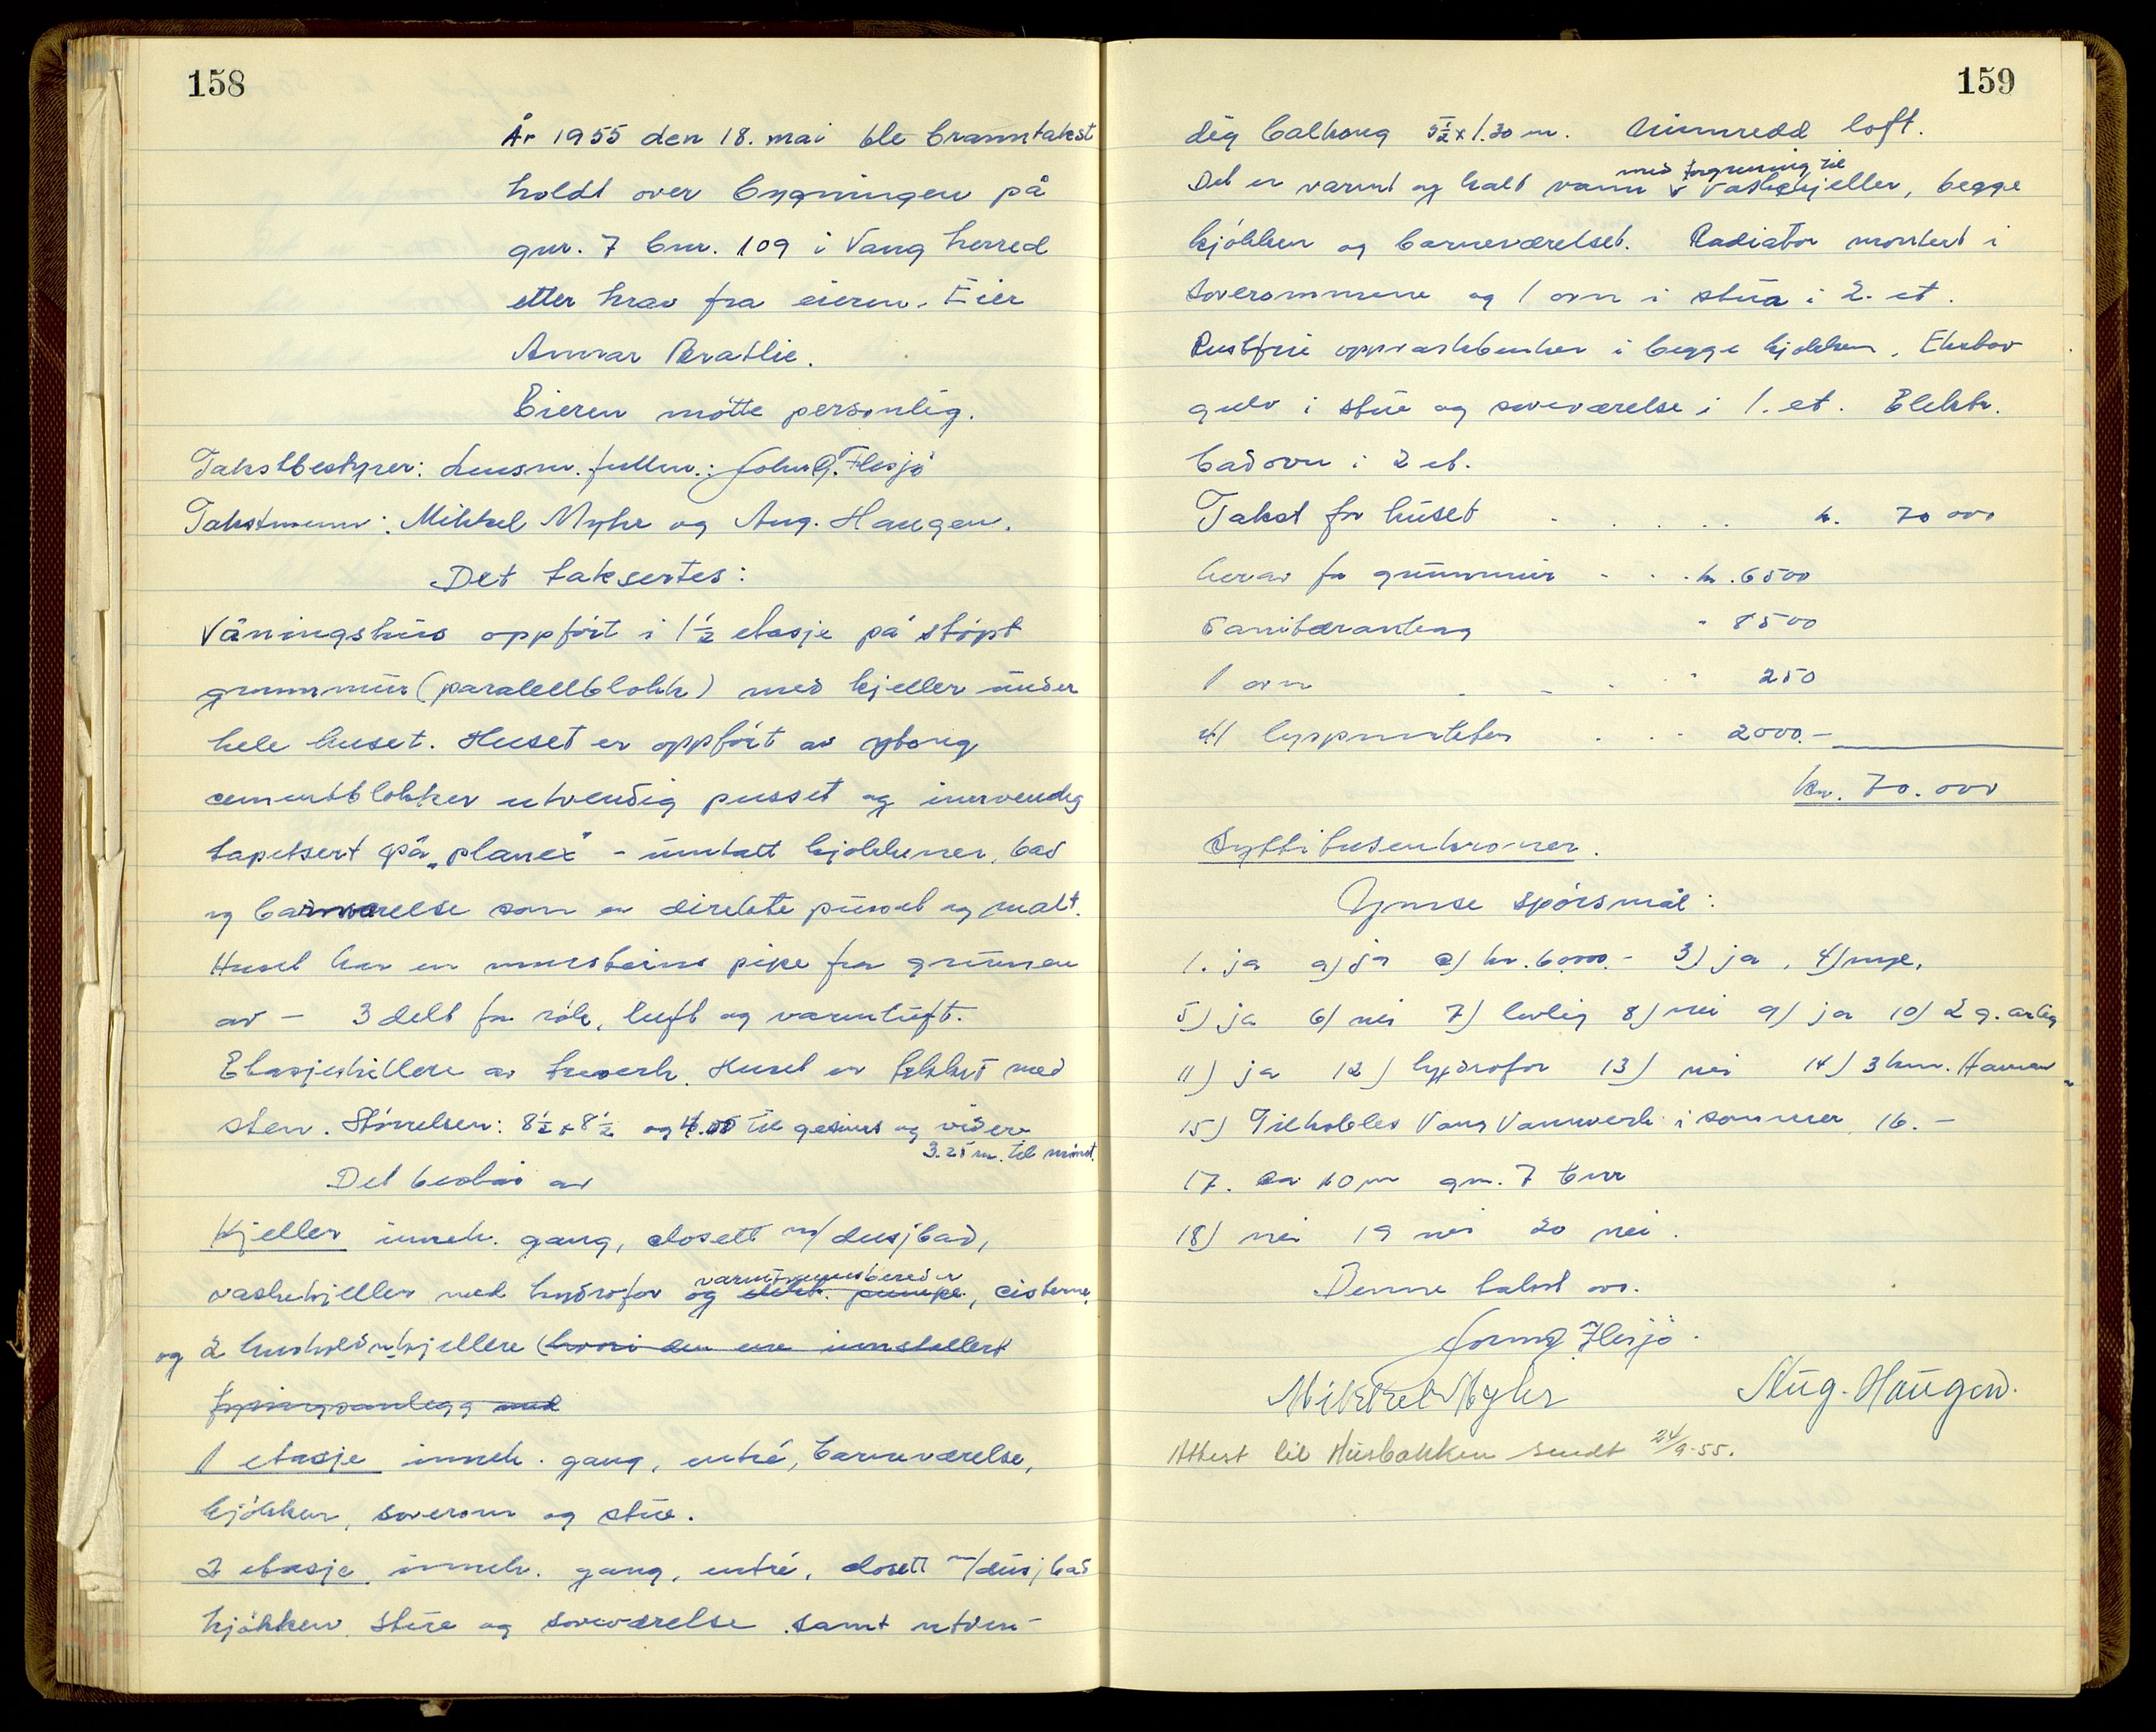 158
År 1955 den 18. mai ble branntakst
holdt over bygningen på
gnr. 7 bnr. 109 i Vang herred
etter krav fra eieren. Eier
Annar Bratlie.
Eieren møtte personlig.
Takstbestyrer: Lensm. fullm.: John G. Flesjø
Takstmenn: Mikkel Myhr og Aug. Haugen.
Det taksertes:
Våningshus oppført i 1½ etasje på støpt
grunnmur (paralellblokk) med kjeller under
hele huset. Huset er oppført av ytong
cementblokker utvendig pusset og innvendig
tapetsert på „planex" - untatt kjøkkener, bad
og barnværelse som er direkte pusset og malt.
Huset har en mursteins pipe fra grunnen
av - 3 delt for røk, luft og varmluft.
Etasjeskillere av treverk. Huset er tekket med
sten. Størrelsen: 8½ x 8½ og 4.00 til gesims og videre
3.25 m. til mønet.
Det består av
Kjeller inneh. gang, closett m/ dusjbad,
varmtvannsbereder
vaskekjeller med hydrofor og elekt. pumpe, cisterne,
og 2 husholdn.kjellere (hvori den ene innstallert
frysingsanlegg med
1 etasje inneh. gang, entré, barneværelse,
kjøkken, soverom og stue.
2 etasje inneh. gang, entré, closett m/dusjbad
kjøkken, stue og soveværelse samt utven-
159
dig balkong 5½ x 1.30 m. Uinnredd loft.
med forgrening til
Det er varmt og kalt vann v vaskekjeller, begge
kjøkken og barneværelset. Radiator montert i
soverommene og 1 ovn i stua i 2. et.
Rustfrie oppvaskbenker i begge kjøkken. Ekstov
gulv i stue og soveværelse i 1. et. Elektr.
badovn i 2 et.
Takst for huset . . . . . k. 70 000
herav for grunnmur . . . kr. 6500
Sanitæranlegg " 8500
1 ovn . . . " 250
41 lyspunkter . . . 2000.-
kr. 70.000
Syttitusenkroner.
Ymse spørsmål:
1. ja a) ja kr. 60000.- 3) ja, 4) mye,
5) ja 6) nei 7) lovlig 8) nei 9) ja 10) 2 g. årlig
11) ja 12) hydrofor 13) nei 14) 3 km. Hamar
15) Tilkobles Vang Vannverk i sommer. 16. -
17. ca 10 m gnr. 7 bnr
18) nei 19 nei 20 nei.
Denne takst
John G. Flesjø.
Mikkel Myhr Aug. Haugen.
Attest til Husbanken sendt 24/9-55.